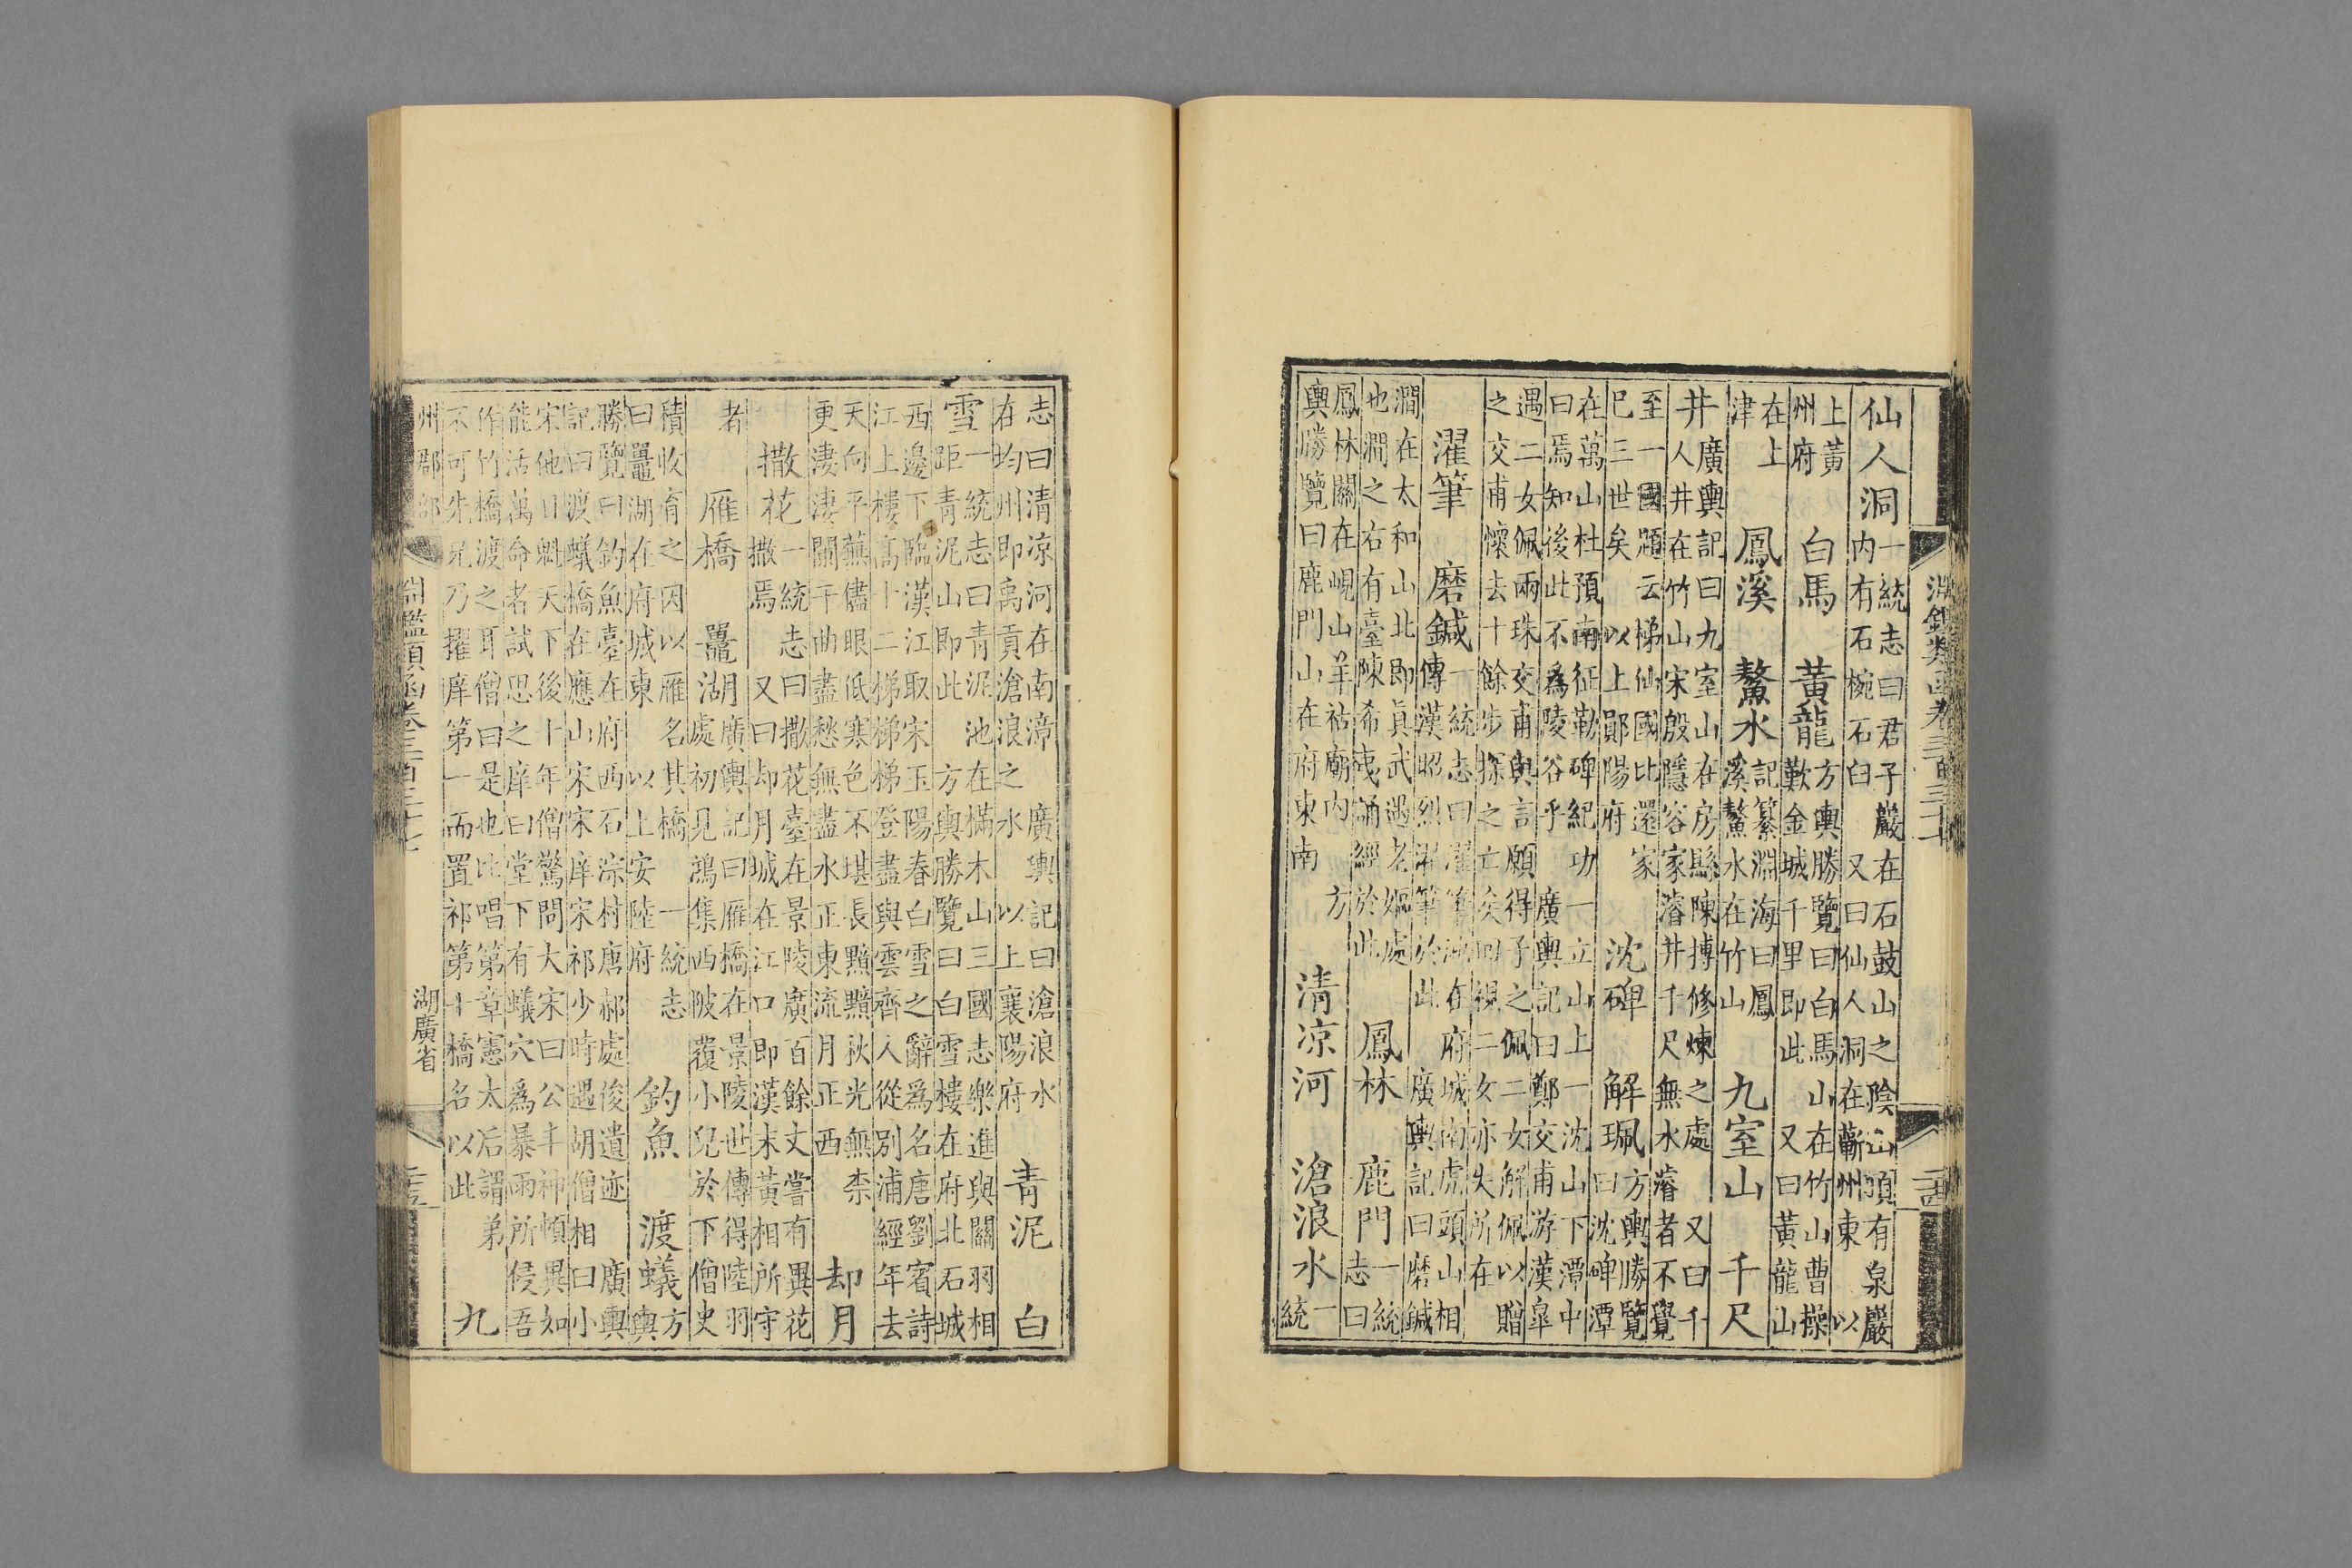 淵鑑類函卷三百三十七
二十四
仙人洞
一統志曰君子巖在石鼓山之陰山頂有泉巖
内有石椀石臼　又曰仙人洞在蘄州東　以
上黃
州府
白馬　黃龍
方輿勝覽曰白馬山在竹山曹操
歎金城千里即此　又曰黃龍山
在上
津
鳳溪　鰲水
記纂淵海曰鳳
溪鰲水在竹山
九室山　千尺
井
廣輿記曰九室山在房縣陳摶修煉之處　又曰千
人井在竹山宋殷隱容家濬井千尺無水濬者不覺
至一國題云梯仙國比還家
已三世矣　以上鄖陽府
沈碑　解珮
方輿勝覽
曰沈碑潭
在萬山杜預南征勒碑紀功一立山上一沈山下潭中
曰焉知後此不為陵谷乎　廣輿記曰鄭交甫游漢臯
遇二女佩兩珠交甫與言願得子之佩二女解佩以贈
之交甫懷去十餘步探之亡矣回視二女亦失所在
濯筆　磨鍼
一統志曰濯筆池在府城南虎頭山相
傳漢昭烈濯筆於此　廣輿記曰磨鍼
澗在太和山北即眞武遇老嫗處
也澗之右有臺陳希夷誦經於此
鳳林　鹿門
一統
志曰
鳳林關在峴山羊祜廟内　方
輿勝覽曰鹿門山在府東南
清凉河　滄浪水
一
統
志曰清凉河在南漳　廣輿記曰滄浪水
在均州即禹貢滄浪之水　以上襄陽府
青泥　白
雪
一統志曰青泥池在樠木山三國志樂進與關羽相
距青泥山即此　方輿勝覽曰白雪樓在府北石城
西邊下臨漢江取宋玉陽春白雪之辭為名唐劉賓詩
江上樓高十二梯梯梯登盡與雲齊人從別浦經年去
天向平蕪儘眼低寒色不堪長黯黯秋光無柰
更淒淒闌干曲盡愁無盡水正東流月正西
却月
撒花
一統志曰撒花臺在景陵廣百餘丈嘗有異花
撒焉　又曰却月城在江口即漢末黃相所守
者
雁橋　鼂湖
廣輿記曰雁橋在景陵世傳得陸羽
處初見鴻集西陂覆小兒於下僧史
積收育之因以雁名其橋　一統志
曰鼂湖在府城東　以上安陸府
釣魚　渡蟻
方
輿
勝覽曰釣魚臺在府西石淙村唐郝處俊遺迹　廣輿
記曰渡蟻橋在應山宋宋庠宋祁少時遇胡僧相曰小
宋他日魁天下後十年僧驚問大宋曰公丰神頓異如
能活萬命者試思之庠曰堂下有蟻穴為暴雨所侵吾
作竹橋渡之耳僧曰是也比唱第章憲太后謂弟
不可先兄乃擢庠第一而置祁第十橋名以此
九
州郡部
淵鑑類函卷三百三十七　湖廣省　二十五